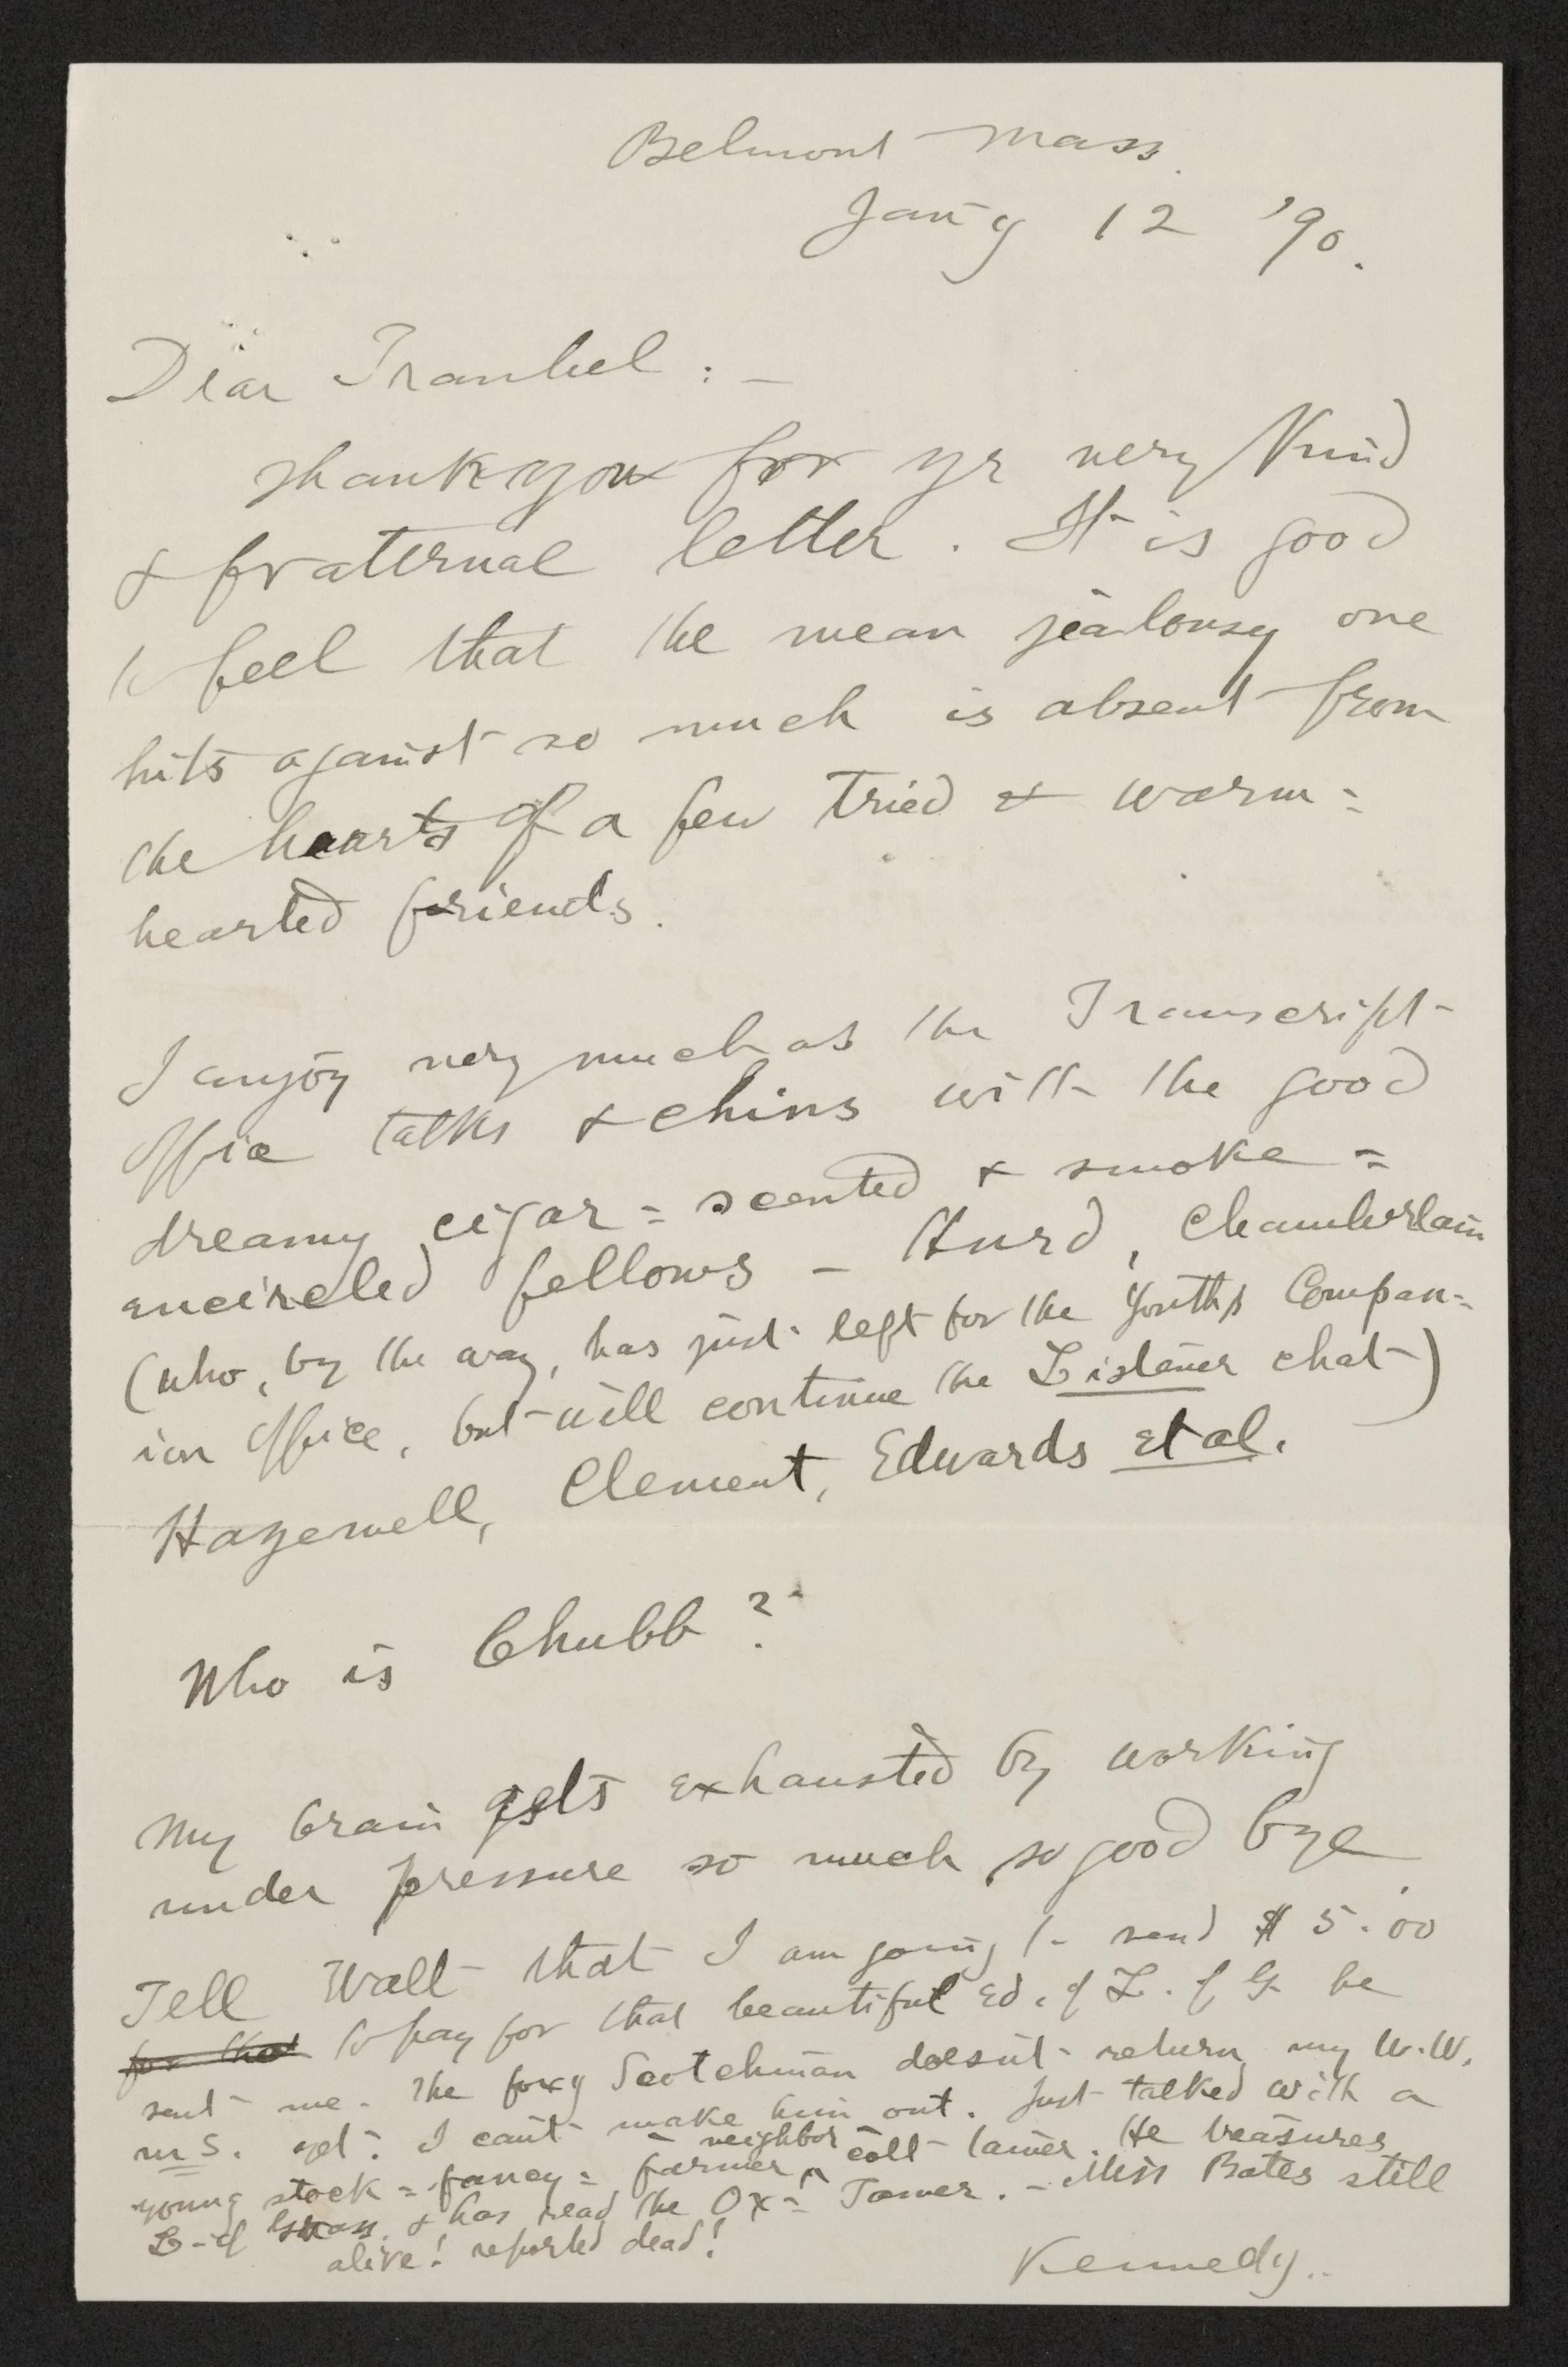 Belmont Mass.
Jany 12 '90.
Dear Traubel : —
Thank you for yr very kind
& fraternal letter. It is good
to feel that the mean jealousy one
hits against so much is absent from
the hearts of a few tried & warm=
hearted friends.
I enjoy very much as the Transcript
office talks & chins with the good
dreamy cigar=scented & smoke=
encircled fellows — Hurd, Chamberlain
(who, by the way, has just left for the Youth's Compan=
ion office, but will continue the Listener chat)
Hazewell, Clement, Edwards et al.
Who is Chubb?
My brain gets exhausted by working
under pressure so much, so good bye.
Tell Walt that I am going to send $5.00
for that to pay for that beautiful ed. of L. of G. he
sent me. The foxy Scotchman doesn't return my W.W.
MS. yet. I can't make him out. Just talked with a
young stock=fancy=farmer neighbor colt-tamer. He treasures
L. of Grass. & has read the Ox=Tamer. — Miss Bates still
alive! reported dead!
Kennedy.